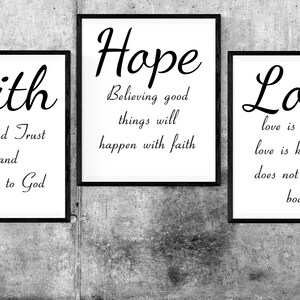 ith
d Trust
and
to God
Hope
Believing good
things will
happen with faith
Lo
love is
love is k
does not
bo